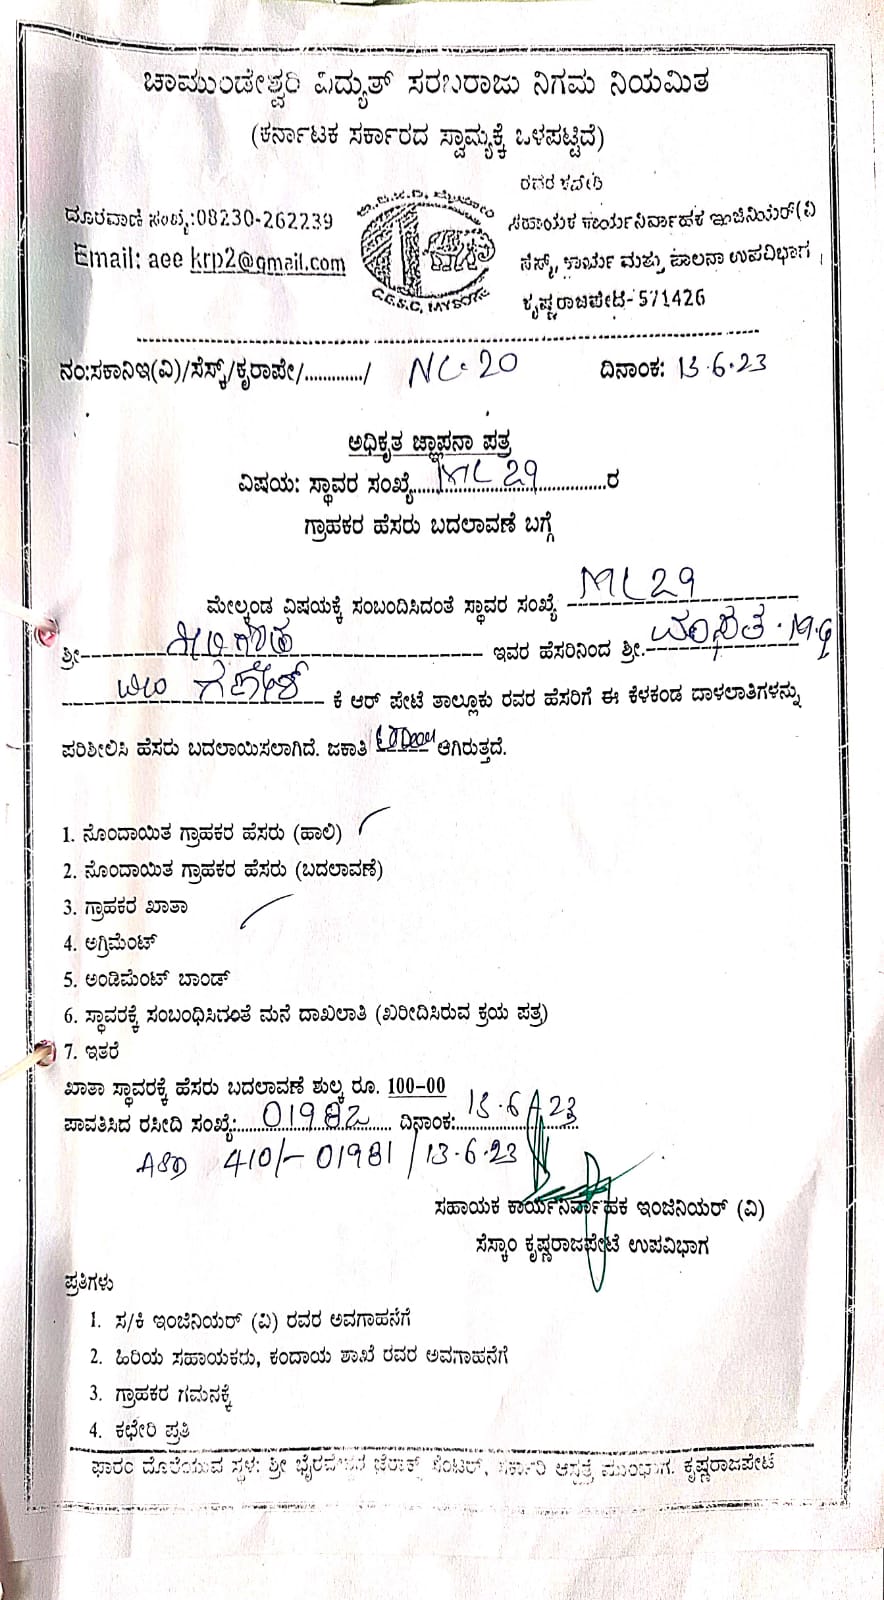 ಚಾಮುಂಡೇಶ್ವರಿ ವಿದ್ಯುತ್ ಸರಬರಾಜು ನಿಗಮ ನಿಯಮಿತ
(ಕರ್ನಾಟಕ ಸರ್ಕಾರದ ಸ್ವಾಮ್ಯಕ್ಕೆ ಒಳಪಟ್ಟಿದೆ)
ರವರ ಕಛೇರಿ
ದೂರವಾಣಿ ಸಂಖ್ಯೆ:08230-262239
ಸಹಾಯಕ ಕಾರ್ಯನಿರ್ವಾಹಕ ಇಂಜಿನಿಯರ್(ವಿ
Email: aee krp2@gmail.com
ಸೆಸ್ಕ್, ಕಾರ್ಯ ಮತ್ತು ಪಾಲನಾ ಉಪವಿಭಾಗ,
C.E.S.C, MYSORE
ಕೃಷ್ಣರಾಜಪೇಟೆ-571426
ನಂ:ಸಕಾನಿಇ(ವಿ)/ಸೆಸ್ಕ್/ಕೃರಾಪೇ/............/ NC-20 ದಿನಾಂಕ: 13.6.23
ಅಧಿಕೃತ ಜ್ಞಾಪನಾ ಪತ್ರ
ವಿಷಯ: ಸ್ಥಾವರ ಸಂಖ್ಯೆ.....ML 29...............ರ
ಗ್ರಾಹಕರ ಹೆಸರು ಬದಲಾವಣೆ ಬಗ್ಗೆ
ಮೇಲ್ಕಂಡ ವಿಷಯಕ್ಕೆ ಸಂಬಂದಿಸಿದಂತೆ ಸ್ಥಾವರ ಸಂಖ್ಯೆ ML29
ಶ್ರೀ ಇವರ ಹೆಸರಿನಿಂದ ಶ್ರೀ.
ಕೆ ಆರ್ ಪೇಟೆ ತಾಲ್ಲೂಕು ರವರ ಹೆಸರಿಗೆ ಈ ಕೆಳಕಂಡ ದಾಳಲಾತಿಗಳನ್ನು
ಪರಿಶೀಲಿಸಿ ಹೆಸರು ಬದಲಾಯಿಸಲಾಗಿದೆ. ಜಕಾತಿ ಆಗಿರುತ್ತದೆ.
1. ನೊಂದಾಯಿತ ಗ್ರಾಹಕರ ಹೆಸರು (ಹಾಲಿ)
2. ನೊಂದಾಯಿತ ಗ್ರಾಹಕರ ಹೆಸರು (ಬದಲಾವಣೆ)
3. ಗ್ರಾಹಕರ ಖಾತಾ
4. ಅಗ್ರಿಮೆಂಟ್
5. ಅಂಡಿಮೆಂಟ್ ಬಾಂಡ್
6. ಸ್ಥಾವರಕ್ಕೆ ಸಂಬಂಧಿಸಿದಂತೆ ಮನೆ ದಾಖಲಾತಿ (ಖರೀದಿಸಿರುವ ಕ್ರಯ ಪತ್ರ)
7. ಇತರೆ
ಖಾತಾ ಸ್ಥಾವರಕ್ಕೆ ಹೆಸರು ಬದಲಾವಣೆ ಶುಲ್ಕ ರೂ. 100-00
ಪಾವತಿಸಿದ ರಸೀದಿ ಸಂಖ್ಯೆ:....01982.... ದಿನಾಂಕ:..13.6.23
ASD 410/- 01981/13.6.23
ಸಹಾಯಕ ಕಾರ್ಯನಿರ್ವಾಹಕ ಇಂಜಿನಿಯರ್ (ವಿ)
ಸೆಸ್ಕಾಂ ಕೃಷ್ಣರಾಜಪೇಟೆ ಉಪವಿಭಾಗ
ಪ್ರತಿಗಳು
1. ಸ/ಕಿ ಇಂಜಿನಿಯರ್ (ವಿ) ರವರ ಅವಗಾಹನೆಗೆ
2. ಹಿರಿಯ ಸಹಾಯಕರು, ಕಂದಾಯ ಶಾಖೆ ರವರ ಅವಗಾಹನೆಗೆ
3. ಗ್ರಾಹಕರ ಗಮನಕ್ಕೆ
4. ಕಛೇರಿ ಪ್ರತಿ
ಫಾರಂ ದೊರೆಯುವ ಸ್ಥಳ: ಶ್ರೀ ಭೈರವೇಶ್ವರ ಜೆರಾಕ್ಸ್ ಸೆಂಟರ್, ಸರ್ಕಾರಿ ಆಸ್ಪತ್ರೆ ಮುಂಭಾಗ. ಕೃಷ್ಣರಾಜಪೇಟೆ